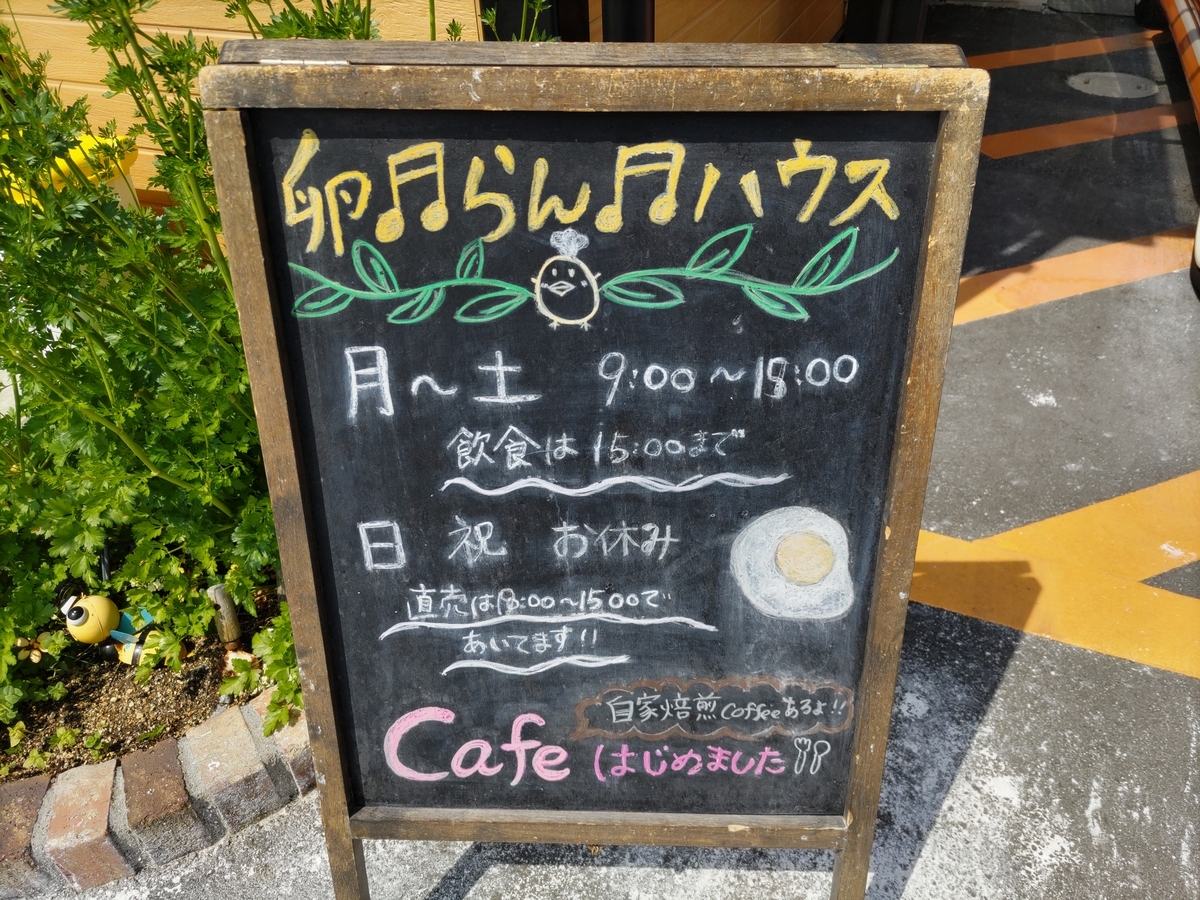 卵♫らん♫ハウス
月～土 9:00～18:00
飲食は15:00まで
日 祝 お休み
直売は8:00～15:00で
あいてます!!
自家焙煎Coffeeあるよ!!
Cafeはじめました